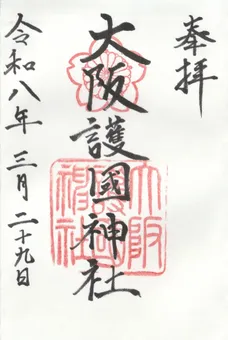 奉拝
大阪護國神社
令和八年三月二十九日
大阪護國神社